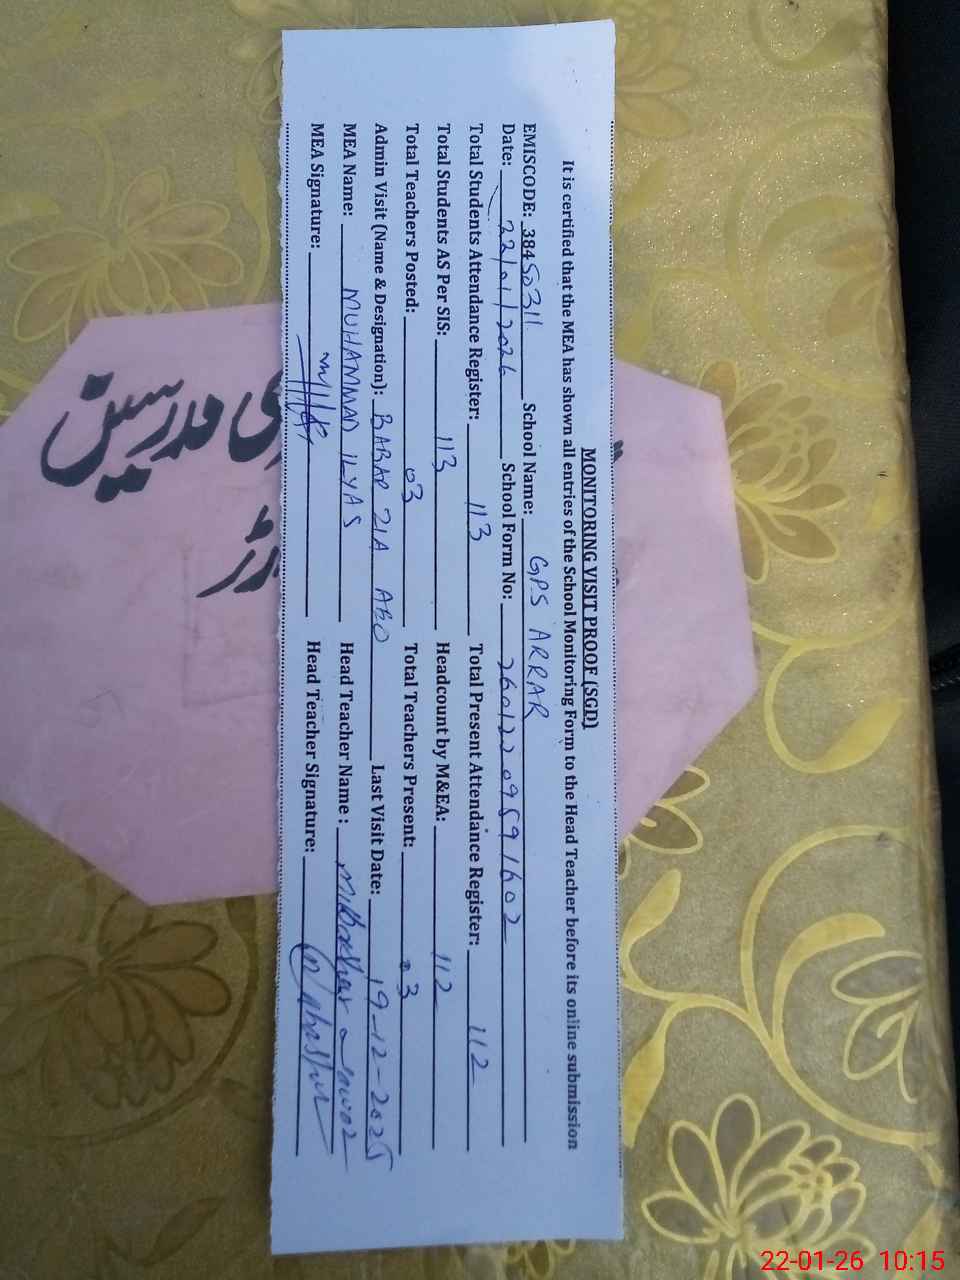 MONITORING VISIT PROOF (SGD)
It is certified that the MEA has shown all entries of the School Monitoring Form to the Head Teacher before its online submission
EMISCODE: 38450311 School Name: GPS ARRAR
Date: 22/01/2026 School Form No: 26012209591602
Total Students Attendance Register: 113 Total Present Attendance Register: 112
Total Students AS Per SIS: 113 Headcount by M&EA: 112
Total Teachers Posted: 03 Total Teachers Present: 03
Admin Visit (Name & Designation): BABAR ZIA AEO Last Visit Date: 19-12-2025
MEA Name: MUHAMMAD ILYAS Head Teacher Name :
MEA Signature: Head Teacher Signature:
مدرسین
22-01-26 10:15